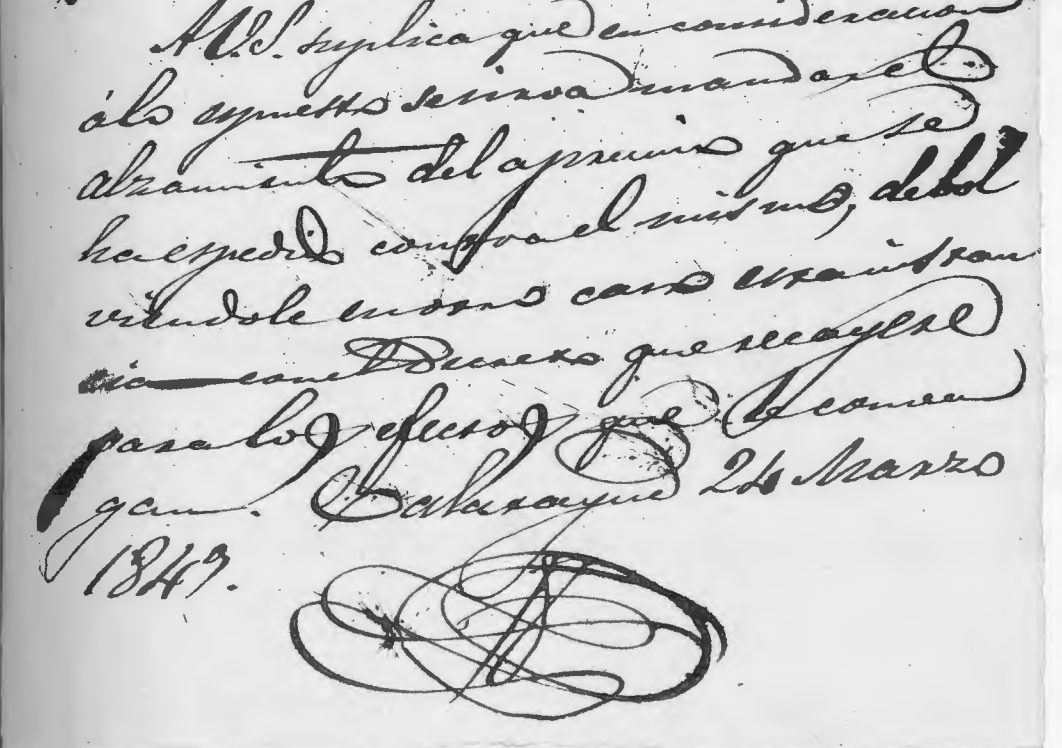 A V.S. suplica que en consideracion
á lo espuesto se sirva mandar el
alzamiento del apremio que se
ha espedido contra el mismo, debol
viendole en otro caso esta instan
cia con el Decreto que recayere
para los efectos que le conven
gan. Calasayud 24 Marzo
1847.